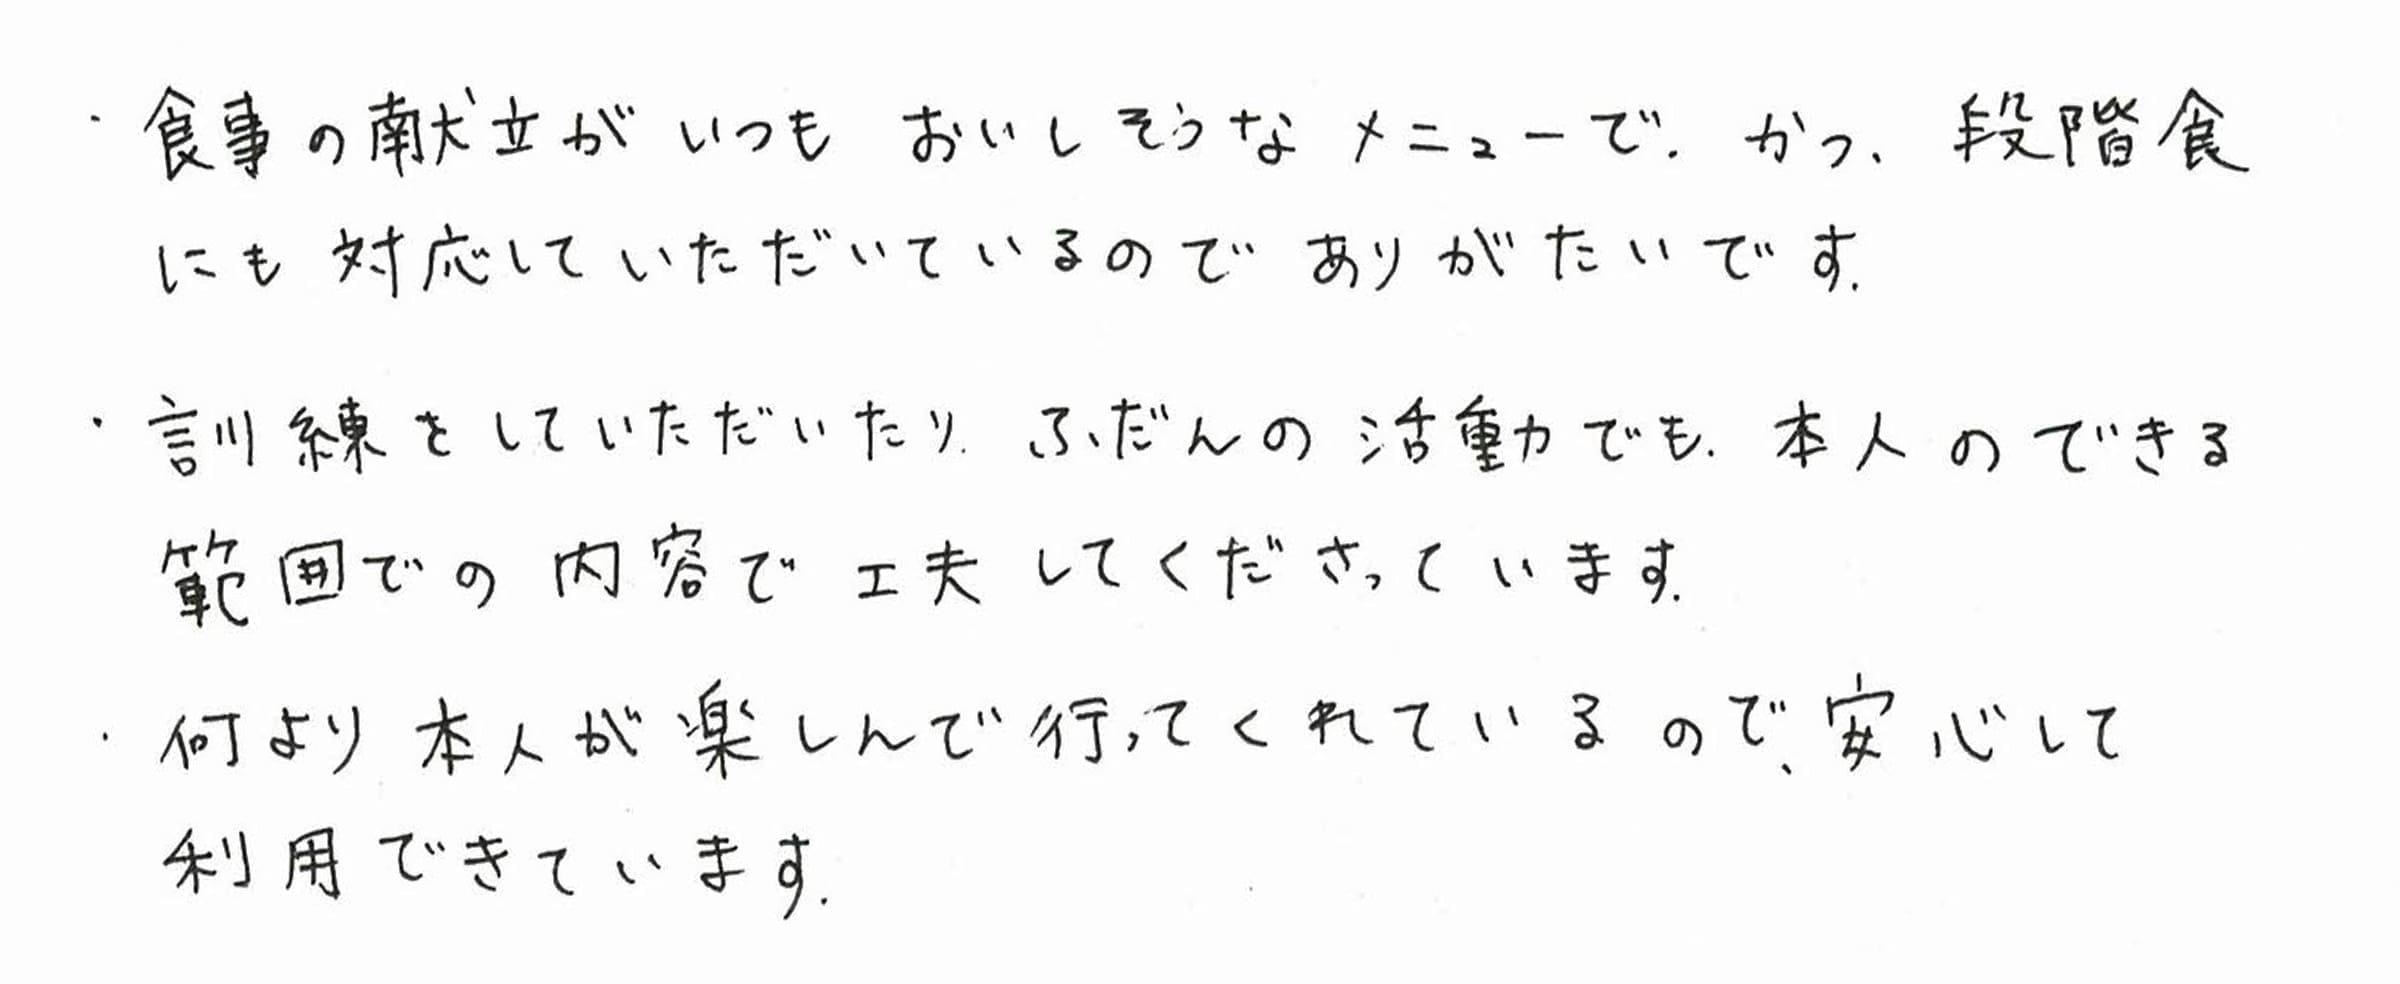 ・食事の献立がいつも おいしそうなメニューで、かつ、段階食
にも対応していただいているのでありがたいです。
・訓練をしていただいたり、ふだんの活動でも、本人のできる
範囲での内容で工夫してくださっています。
・何より本人が楽しんで行ってくれているので、安心して
利用できています。